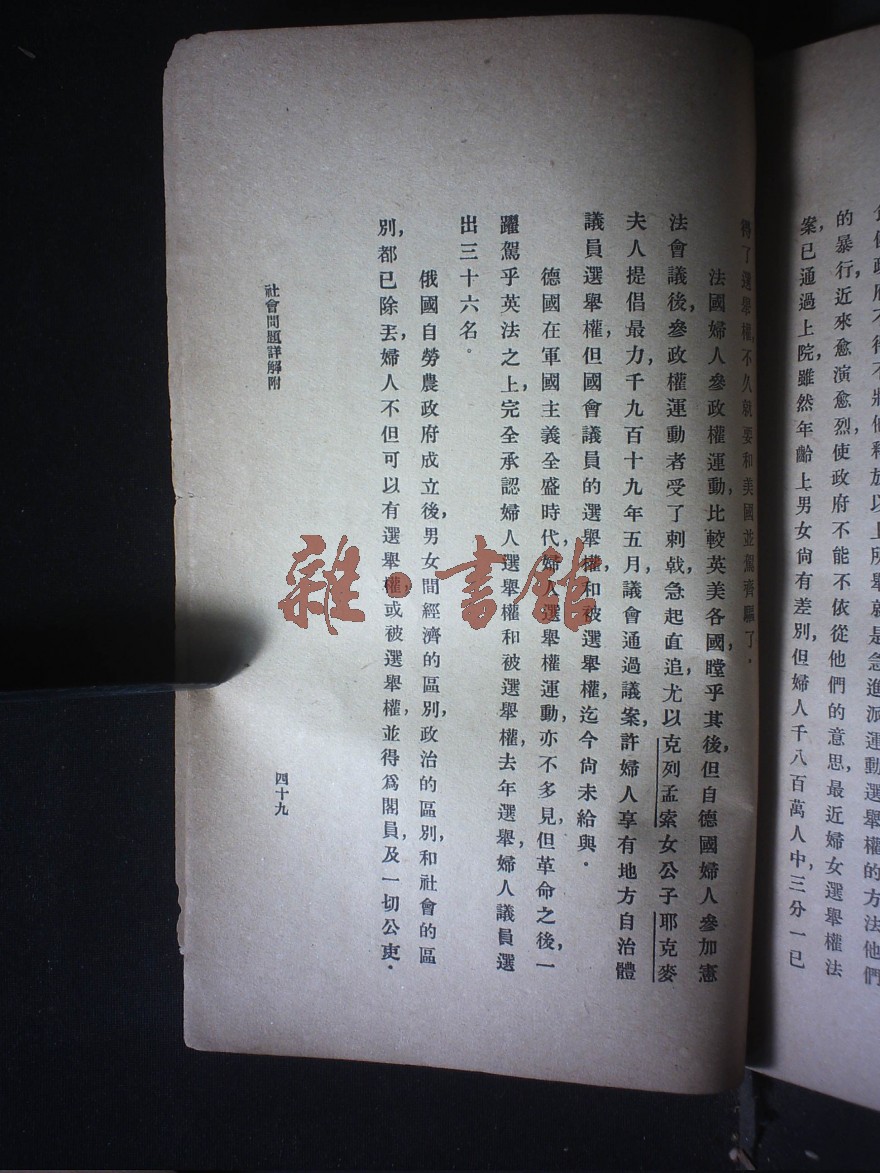 不得不將他釋放以上所舉就是急進派運動選舉權的方法他們
的暴行，近來愈演愈烈，使政府不能不依從他們的意思，最近婦女選舉權法
案，已通過上院，雖然年齡上，男女尚有差別，但婦人千八百萬人中，三分一已
將了選舉權，不久就要和美國並駕齊驅了．
法國婦人參政權運動，比較英美各國，瞠乎其後，但自德國婦人參加憲
法會議後，參政權運動者受了刺戟，急起直追，尤以克列孟索女公子耶克麥
夫人提倡最力，千九百十九年五月，議會通過議案，許婦人享有地方自治體
議員選舉權，但國會議員的選舉權，和被選舉權，迄今尚未給與．
德國在軍國主義全盛時代，婦人選舉權運動，亦不多見，但革命之後，一
躍駕乎英法之上，完全承認婦人選舉權和被選舉權，去年選舉，婦人議員選
出三十六名。
俄國自勞農政府成立後，男女間經濟的區別，政治的區別，和社會的區
別，都已除丟，婦人不但可以有選舉權，或被選舉權，並得爲閣員，及一切公吏．
社會問題詳解附
四十九
雜·書館